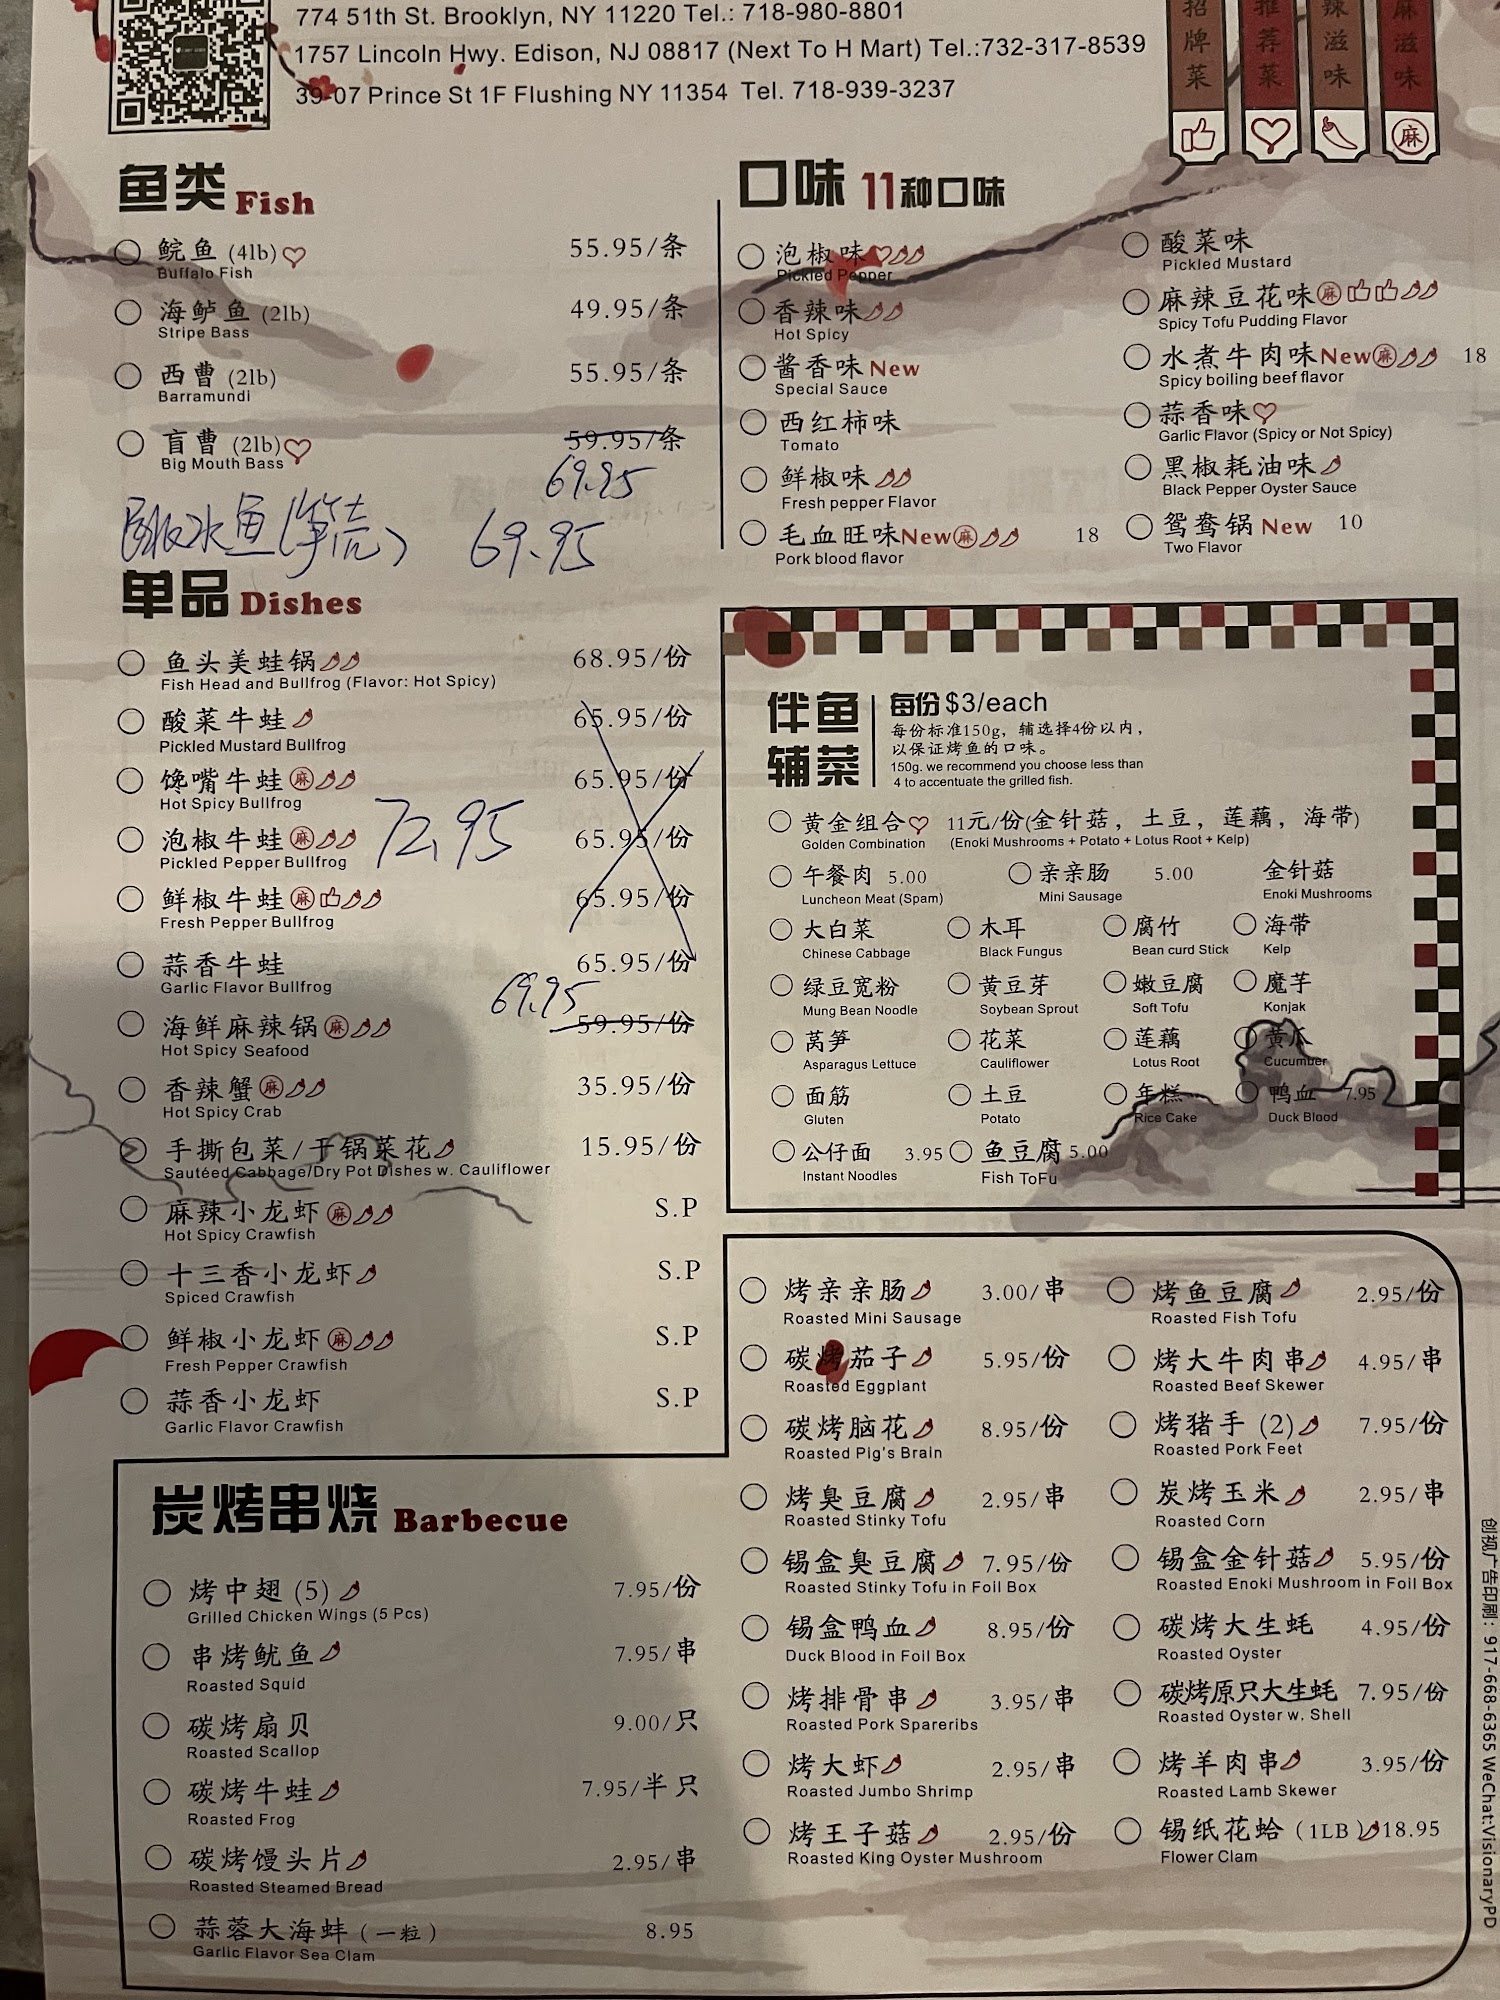 774 51th St. Brooklyn, NY 11220 Tel.: 718-980-8801
1757 Lincoln Hwy. Edison, NJ 08817 (Next To H Mart) Tel.:732-317-8539
39-07 Prince St 1F Flushing NY 11354 Tel. 718-939-3237
招牌菜
推荐菜
辣滋味
麻滋味
麻
鱼类 Fish
鲩鱼 (4lb) 55.95/条
Buffalo Fish
海鲈鱼 (2lb) 49.95/条
Stripe Bass
西曹 (2lb) 55.95/条
Barramundi
盲曹 (2lb) 59.95/条
Big Mouth Bass
69.95
69.95
口味 11种口味
泡椒味
Pickled Pepper
香辣味
Hot Spicy
酱香味 New
Special Sauce
西红柿味
Tomato
鲜椒味
Fresh pepper Flavor
毛血旺味New麻 18
Pork blood flavor
酸菜味
Pickled Mustard
麻辣豆花味麻
Spicy Tofu Pudding Flavor
水煮牛肉味New麻 18
Spicy boiling beef flavor
蒜香味
Garlic Flavor (Spicy or Not Spicy)
黑椒耗油味
Black Pepper Oyster Sauce
鸳鸯锅 New 10
Two Flavor
单品 Dishes
鱼头美蛙锅 68.95/份
Fish Head and Bullfrog (Flavor: Hot Spicy)
酸菜牛蛙 65.95/份
Pickled Mustard Bullfrog
馋嘴牛蛙麻 65.95/份
Hot Spicy Bullfrog
72.95
泡椒牛蛙麻 65.95/份
Pickled Pepper Bullfrog
鲜椒牛蛙麻 65.95/份
Fresh Pepper Bullfrog
蒜香牛蛙 65.95/份
Garlic Flavor Bullfrog
69.95
海鲜麻辣锅麻 59.95/份
Hot Spicy Seafood
香辣蟹麻 35.95/份
Hot Spicy Crab
手撕包菜/干锅菜花 15.95/份
Sautéed Cabbage/Dry Pot Dishes w. Cauliflower
麻辣小龙虾麻 S.P
Hot Spicy Crawfish
十三香小龙虾 S.P
Spiced Crawfish
鲜椒小龙虾麻 S.P
Fresh Pepper Crawfish
蒜香小龙虾 S.P
Garlic Flavor Crawfish
伴鱼辅菜
每份 $3/each
每份标准150g, 辅选择4份以内,
以保证烤鱼的口味。
150g. we recommend you choose less than
4 to accentuate the grilled fish.
黄金组合 11元/份(金针菇, 土豆, 莲藕, 海带)
Golden Combination (Enoki Mushrooms + Potato + Lotus Root + Kelp)
午餐肉 5.00 亲亲肠 5.00 金针菇
Luncheon Meat (Spam) Mini Sausage Enoki Mushrooms
大白菜 木耳 腐竹 海带
Chinese Cabbage Black Fungus Bean curd Stick Kelp
绿豆宽粉 黄豆芽 嫩豆腐 魔芋
Mung Bean Noodle Soybean Sprout Soft Tofu Konjak
莴笋 花菜 莲藕 黄瓜
Asparagus Lettuce Cauliflower Lotus Root Cucumber
面筋 土豆 年糕 鸭血 7.95
Gluten Potato Rice Cake Duck Blood
公仔面 3.95 鱼豆腐 5.00
Instant Noodles Fish ToFu
炭烤串烧 Barbecue
烤中翅 (5) 7.95/份
Grilled Chicken Wings (5 Pcs)
串烤鱿鱼 7.95/串
Roasted Squid
碳烤扇贝 9.00/只
Roasted Scallop
碳烤牛蛙 7.95/半只
Roasted Frog
碳烤馒头片 2.95/串
Roasted Steamed Bread
蒜蓉大海蚌 (一粒) 8.95
Garlic Flavor Sea Clam
烤亲亲肠 3.00/串
Roasted Mini Sausage
碳烤茄子 5.95/份
Roasted Eggplant
碳烤脑花 8.95/份
Roasted Pig's Brain
烤臭豆腐 2.95/串
Roasted Stinky Tofu
锡盒臭豆腐 7.95/份
Roasted Stinky Tofu in Foil Box
锡盒鸭血 8.95/份
Duck Blood in Foil Box
烤排骨串 3.95/串
Roasted Pork Spareribs
烤大虾 2.95/串
Roasted Jumbo Shrimp
烤王子菇 2.95/份
Roasted King Oyster Mushroom
烤鱼豆腐 2.95/份
Roasted Fish Tofu
烤大牛肉串 4.95/串
Roasted Beef Skewer
烤猪手 (2) 7.95/份
Roasted Pork Feet
炭烤玉米 2.95/串
Roasted Corn
锡盒金针菇 5.95/份
Roasted Enoki Mushroom in Foil Box
碳烤大生蚝 4.95/份
Roasted Oyster
碳烤原只大生蚝 7.95/份
Roasted Oyster w. Shell
烤羊肉串 3.95/份
Roasted Lamb Skewer
锡纸花蛤 (1LB) 18.95
Flower Clam
创视广告印刷: 917-668-6365 WeChat:VisionaryPD